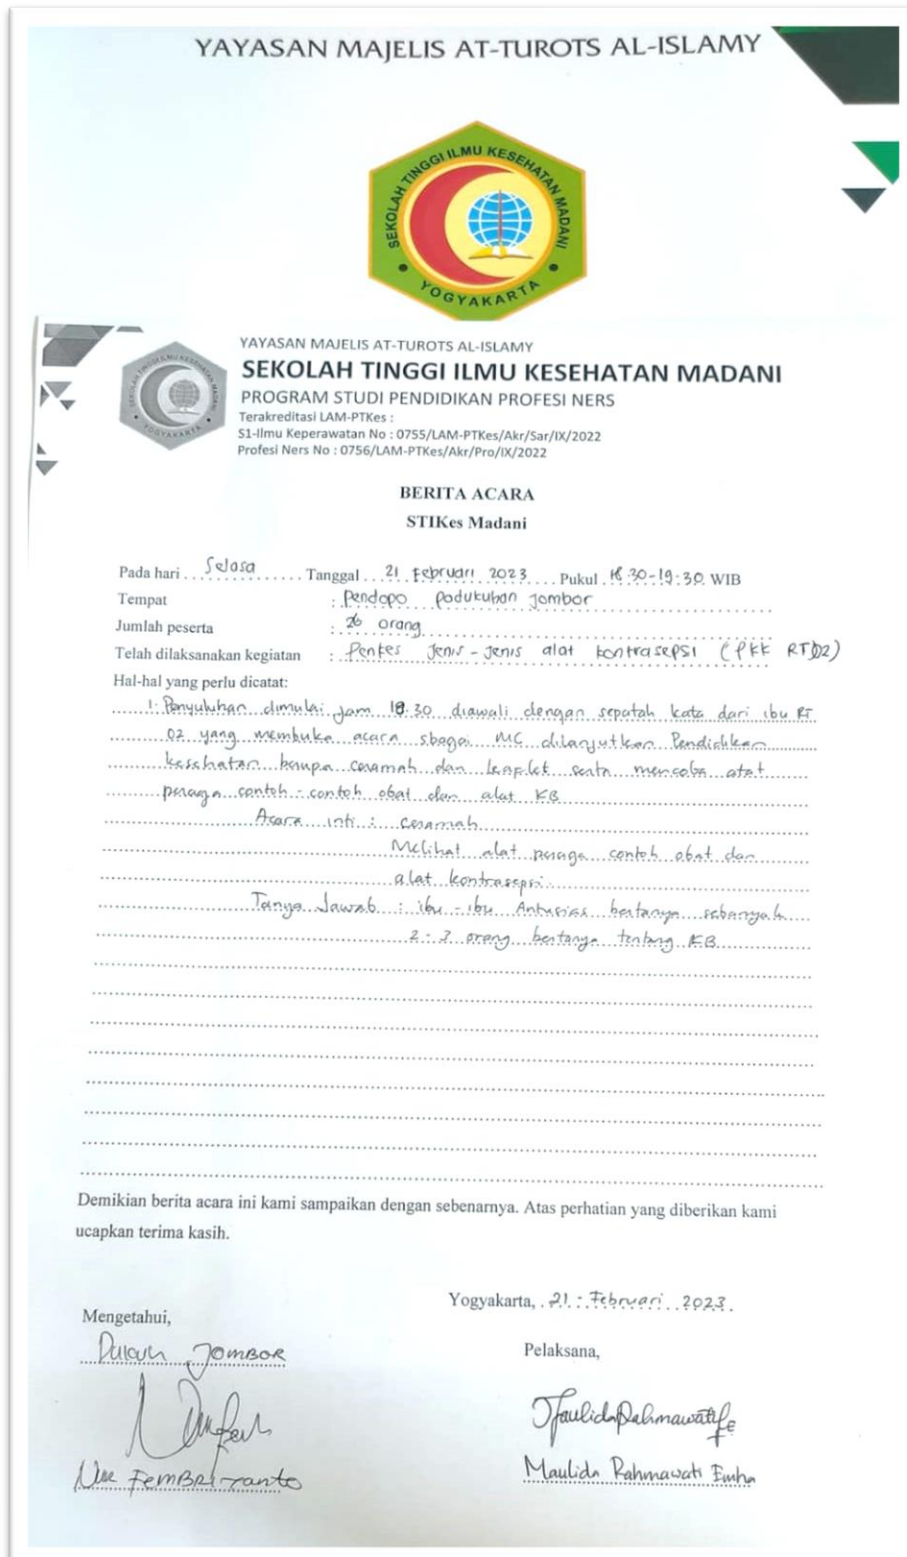 YAYASAN MAJELIS AT-TUROTS AL-ISLAMY
SEKOLAH TINGGI ILMU KESEHATAN MADANI
YOGYAKARTA
YAYASAN MAJELIS AT-TUROTS AL-ISLAMY
SEKOLAH TINGGI ILMU KESEHATAN MADANI
PROGRAM STUDI PENDIDIKAN PROFESI NERS
Terakreditasi LAM-PTKes :
S1-Ilmu Keperawatan No : 0755/LAM-PTKes/Akr/Sar/IX/2022
Profesi Ners No : 0756/LAM-PTKes/Akr/Pro/IX/2022
SEKOLAH TINGGI ILMU KESEHATAN MADANI
YOGYAKARTA
BERITA ACARA
STIKes Madani
Pada hari Selasa Tanggal 21 Februari 2023 Pukul 18.30-19.30 WIB
Tempat : Pendopo padukuhan Jombor
Jumlah peserta : 26 orang
Telah dilaksanakan kegiatan : Penkes Jenis-Jenis alat kontrasepsi (PKK RT 02)
Hal-hal yang perlu dicatat:
1. Penyuluhan dimulai jam 18.30 diawali dengan sepatah kata dari ibu RT
02 yang membuka acara sbagai MC dilanjutkan Pendidikan
kesehatan berupa ceramah dan leaplet serta mencoba alat
peraga contoh-contoh obat dan alat KB
Acara inti : ceramah
Melihat alat peraga contoh obat dan
alat kontrasepsi
Tanya Jawab : ibu-ibu Antusias bertanya sebanyak
2-3 orang bertanya tentang KB
Demikian berita acara ini kami sampaikan dengan sebenarnya. Atas perhatian yang diberikan kami
ucapkan terima kasih.
Yogyakarta, 21 Februari 2023
Mengetahui,
Pelaksana,
Dukuh JOMBOR
Maulida Rahmawati Emha